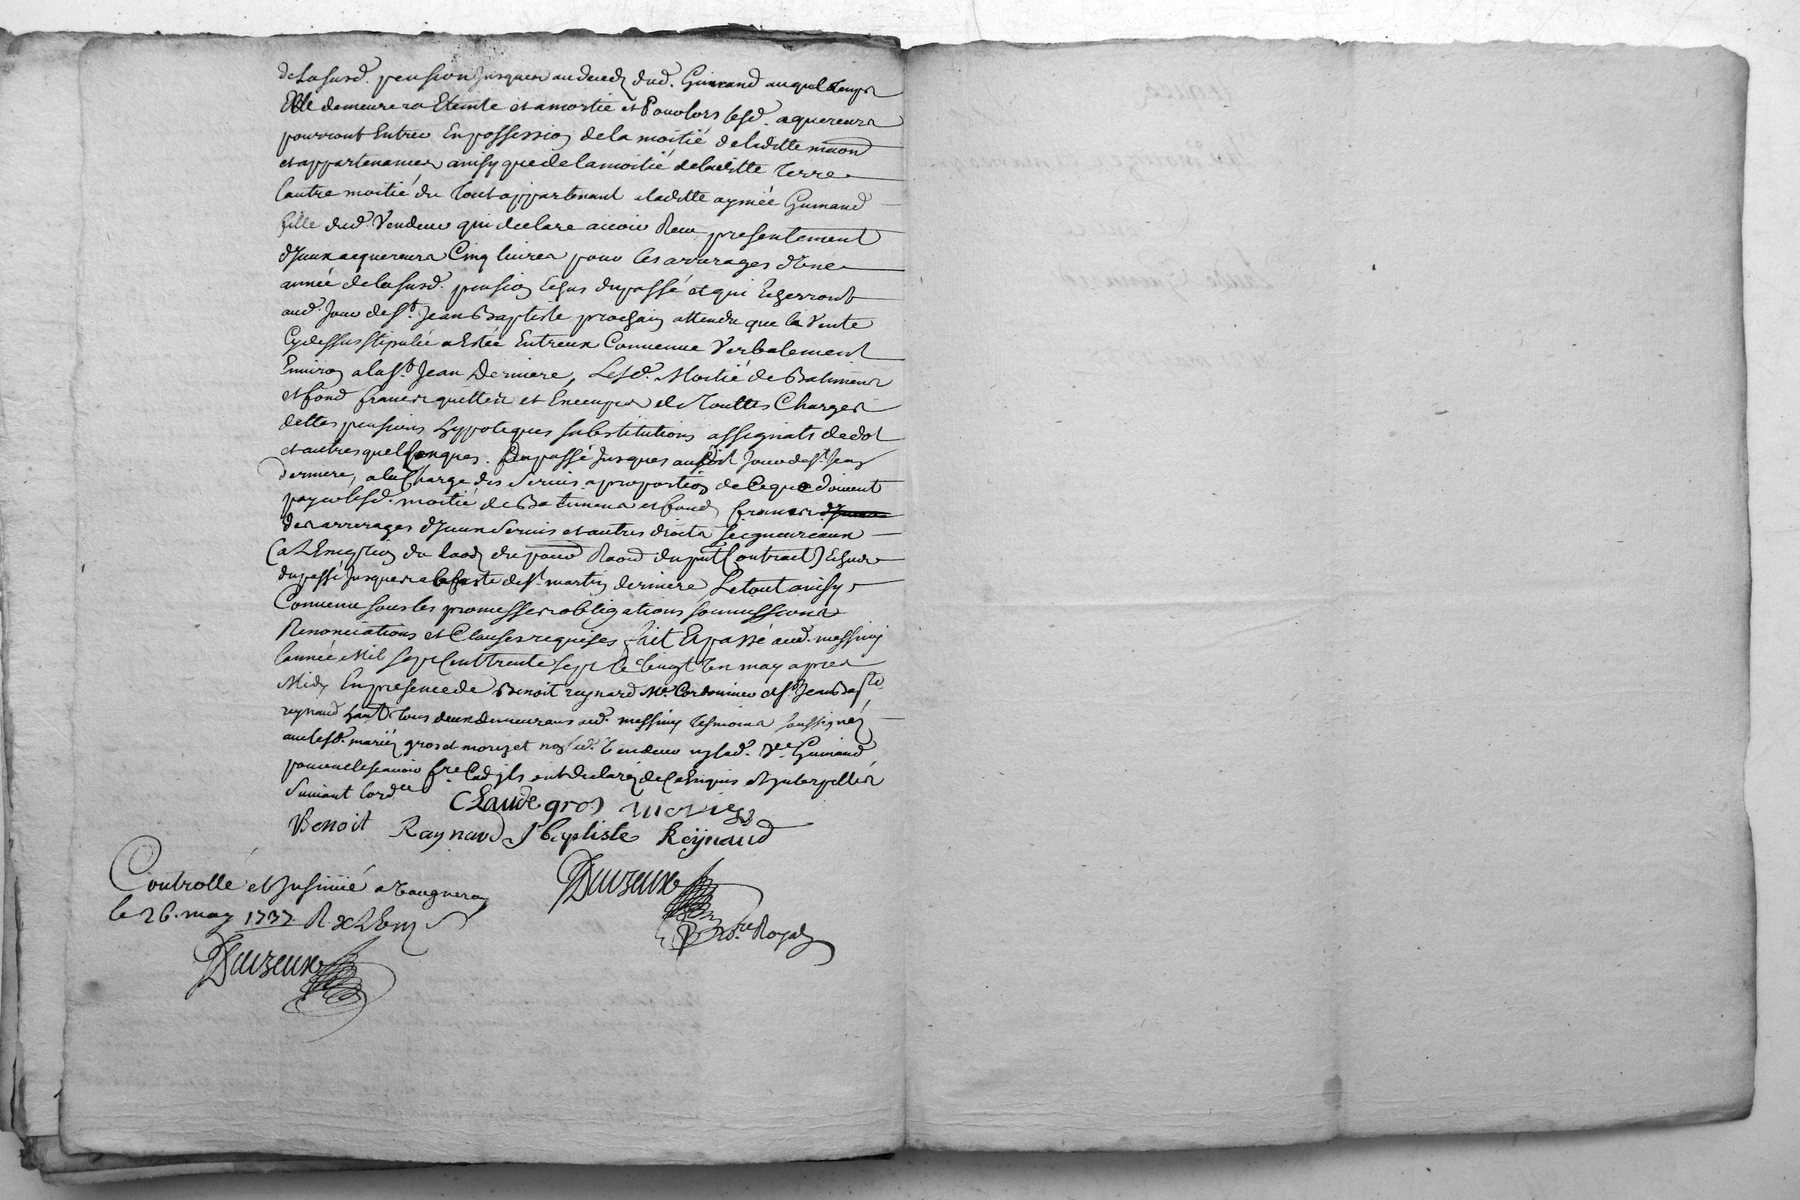 de lasusd. pension jusques au deceds dud. Guinand auquel temps
Elle demeurera Eteinte et amortie et Pouolors lesd. aquereurs
pourront Entrer En possession de la moitié de laditte maon
et appartenances ainsy que de la moitié de laditte Terre
lautre moitié du Tout appartenant a laditte aymée Guinand
fille dud. Vendeur qui declare auoir Receu presentement
d'Iceux acquereurs Cinq liures pour les arrerages d'une
année de lasusd. pension Echus du passé et qui Echerront
aud. Jour de St. Jean Baptiste prochain attendu que la Vente
Cydessus stipulée a Estée Entreux Conuenue Verbalement
Enuiron a la St. Jean Derniere, Lesd. Moitié de Batiments
et fond francs quittes et Exempts de Touttes Charges
dettes pensions hypoteques substitutions assignats de dot
et autres quelsconques. Du passé Jusques audit Jour de St. Jean
derniere, a la Charge des Seruis a proportion de Ce que doiuent
payer lesd. moitié de Batiments et fond, francs
des arrerages d'Iceux Seruis et autres droits seigneuriaux
(a L'Exception du Laods du pour Raon du pnt Contract) Echus
du passé Jusques a la feste de St. martin derniere, Le tout ainsy
Conuenu sous les promesses obligations soumissions
Renonciations et Clauses requises, fait Et passé aud. messimy
lannée Mil sept Cent trente sept le Vingt Un may apres
Midy En presence de Benoit reynard Me. Cordonnier et Sr. Jean Bapte.
reynaud tous deux demeurans aud. messimy Tesmoins soussignés
auec lesd. mariés gros et morizet non led. Vendeur ny lad. Vve. Guinand
pour ne le sçauoir fre. Cad ils ont declaré de Ce Enquis et Interpellés
Suiuant Lordce
Claude gros morizet
Benoit Raynard J baptiste Reÿnaud
Controllé et Insinué a Vaugneray
le 26. may 1737 R. dix Liures
Duizeux
Duizeux
Nore. Royal